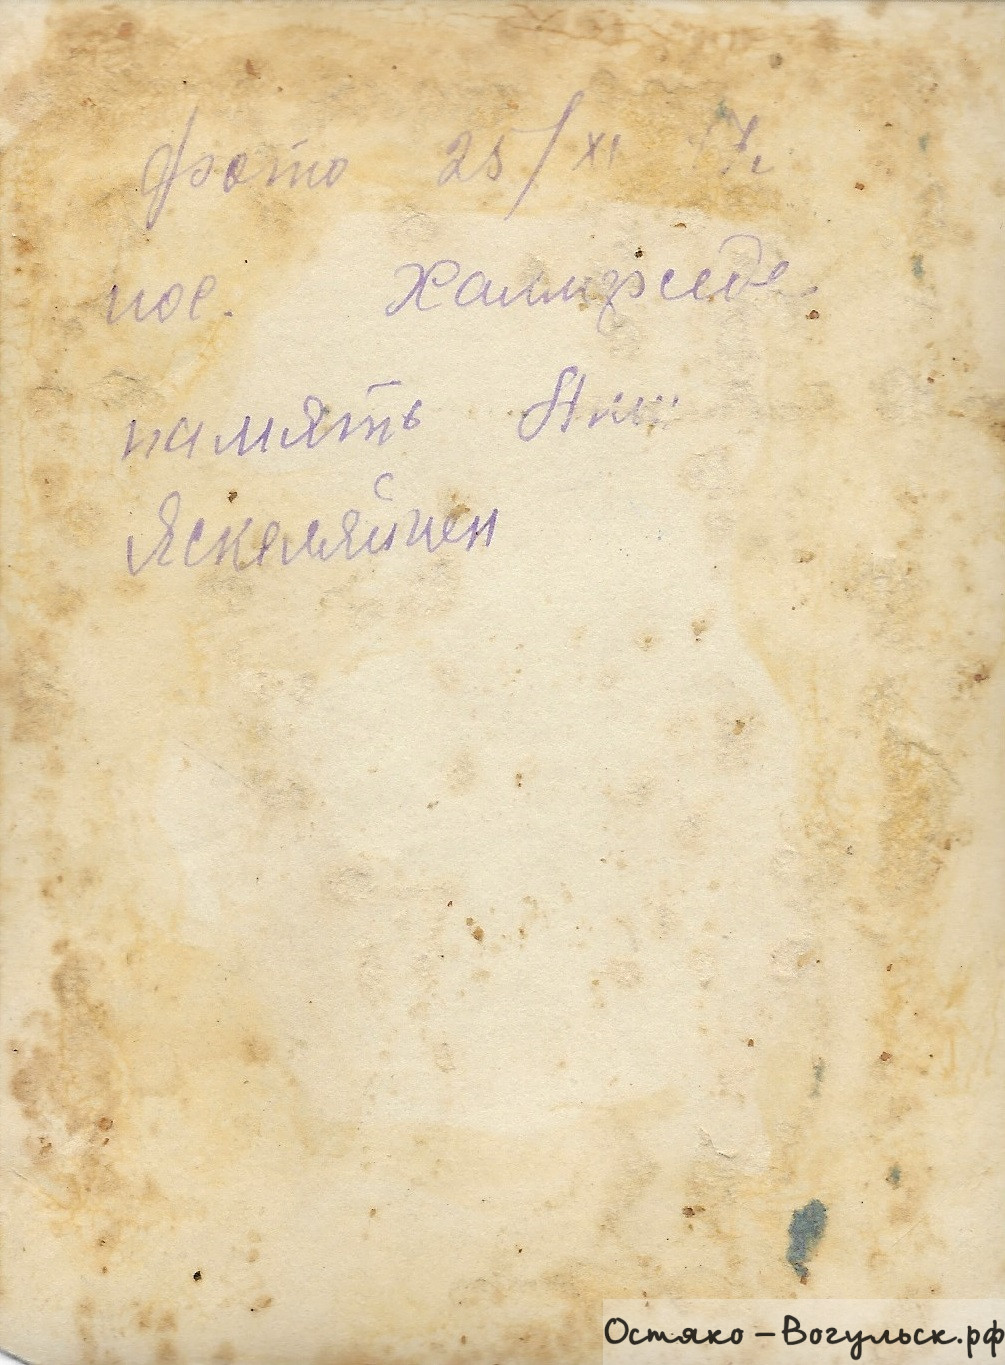 фото 25/XI 47г
пос. Хальмрседе.
память
Яскеляйнен
Остяко-Вогульск.рф